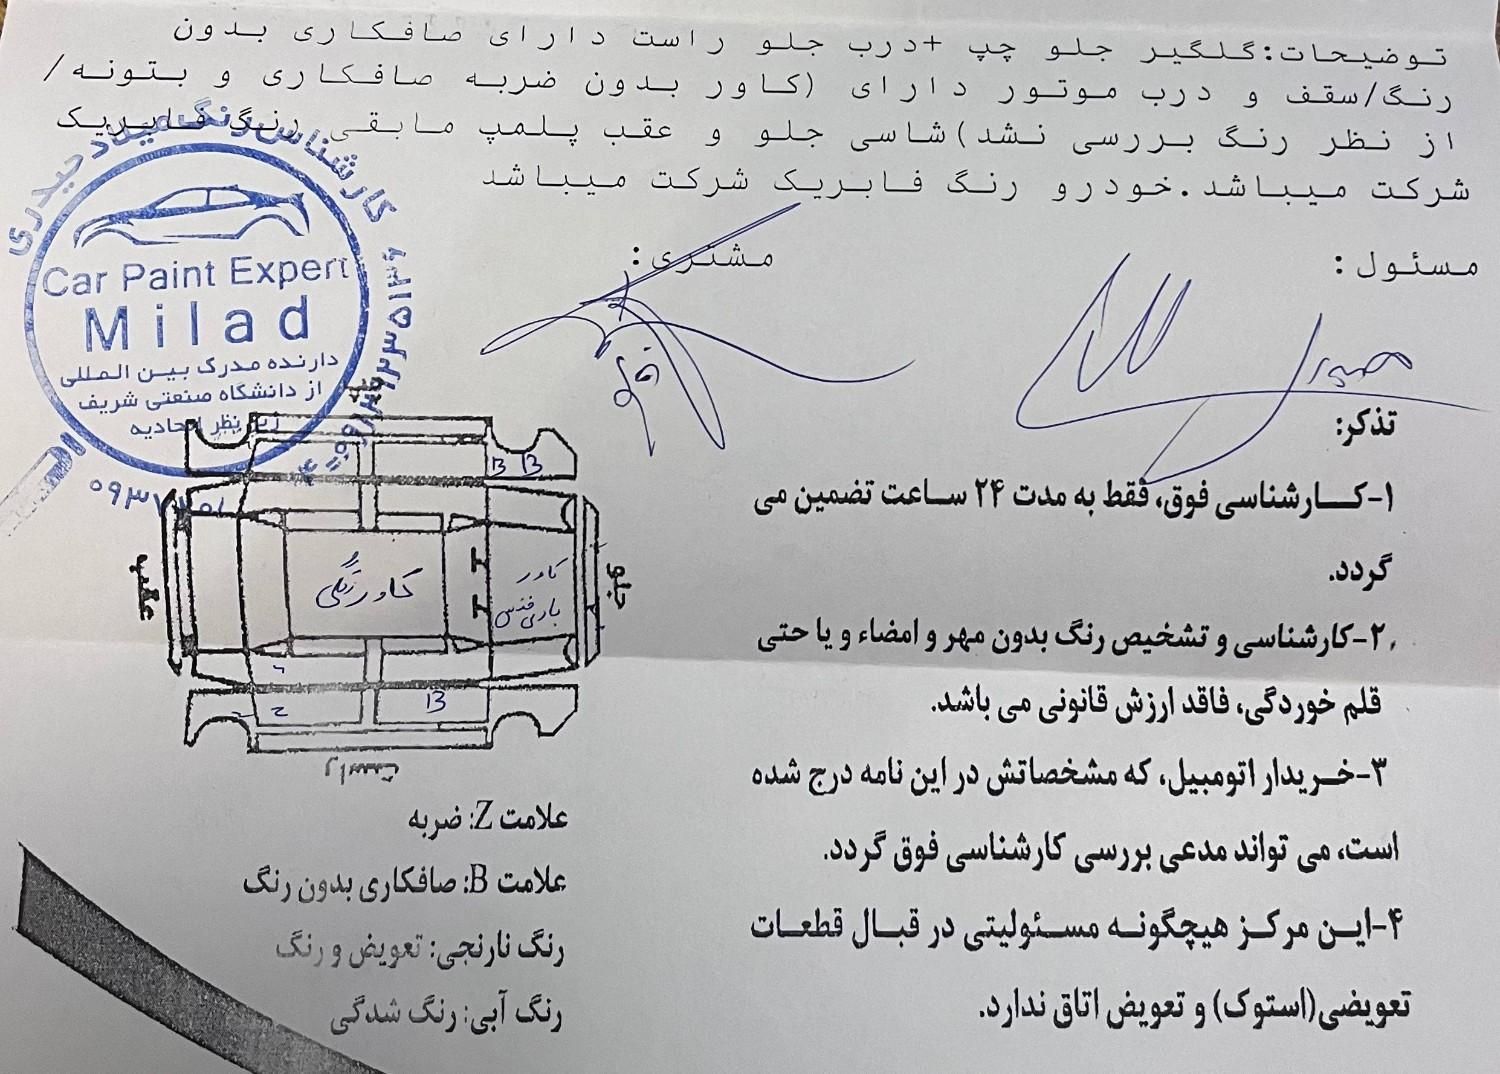 توضیحات:گلگیر جلو چپ +درب جلو راست دارای صافکاری بدون
رنگ/سقف و درب موتور دارای (کاور بدون ضربه صافکاری و بتونه/
از نظر رنگ بررسی نشد)شاسی جلو و عقب پلمپ مابقی رنگ فابریک
شرکت میباشد.خودرو رنگ فابریک شرکت میباشد
مسئول:
مشتری:
کارشناس رنگ میلاد حیدری
Car Paint Expert
Milad
دارنده مدرک بین المللی
از دانشگاه صنعتی شریف
زیر نظر اتحادیه
B B
جلو
عقب
کاور رنگی
کاور
B
Z
راست
علامت Z: ضربه
علامت B: صافکاری بدون رنگ
رنگ نارنجی: تعویض و رنگ
رنگ آبی: رنگ شدگی
تذکر:
۱-کـارشناسی فوق، فقط به مدت ۲۴ ساعت تضمین می
گردد.
۲-کارشناسی و تشخیص رنگ بدون مهر و امضاء و یا حتی
قلم خوردگی، فاقد ارزش قانونی می باشد.
۳-خـریدار اتومبیل، که مشخصاتش در این نامه درج شده
است، می تواند مدعی بررسی کارشناسی فوق گردد.
۴-ایـن مرکـز هیچگونـه مسـئولیتی در قبـال قطعـات
تعویضی(استوک) و تعویض اتاق ندارد.